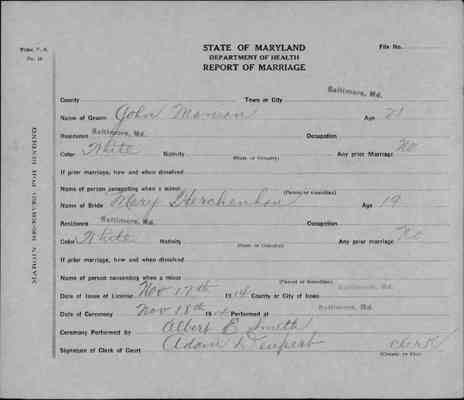 STATE OF MARYLAND
DEPARTMENT OF HEALTH
REPORT OF MARRIAGE
File No.
MARGIN RESERVED FOR BINDING
County Town or City Baltimore, Md.
Name of Groom John Age 21
Residence Baltimore, Md. Occupation
Color White Nativity (State or Country) Any prior Marriage No
If prior marriage, how and when dissolved
Name of person consenting when a minor (Parent or Guardian)
Name of Bride Mary Age 19
Residence Baltimore, Md. Occupation
Color White Nativity (State or Country) Any prior marriage No
If prior marriage, how and when dissolved
Name of person consenting when a minor (Parent or Guardian)
Date of Issue of License Nov 17th 1914 County or City of Issue Baltimore, Md.
Date of Ceremony Nov 18th 1914 Performed at Baltimore, Md.
Ceremony Performed by Albert E. Smith
Signature of Clerk of Court Adam Deupert Clerk